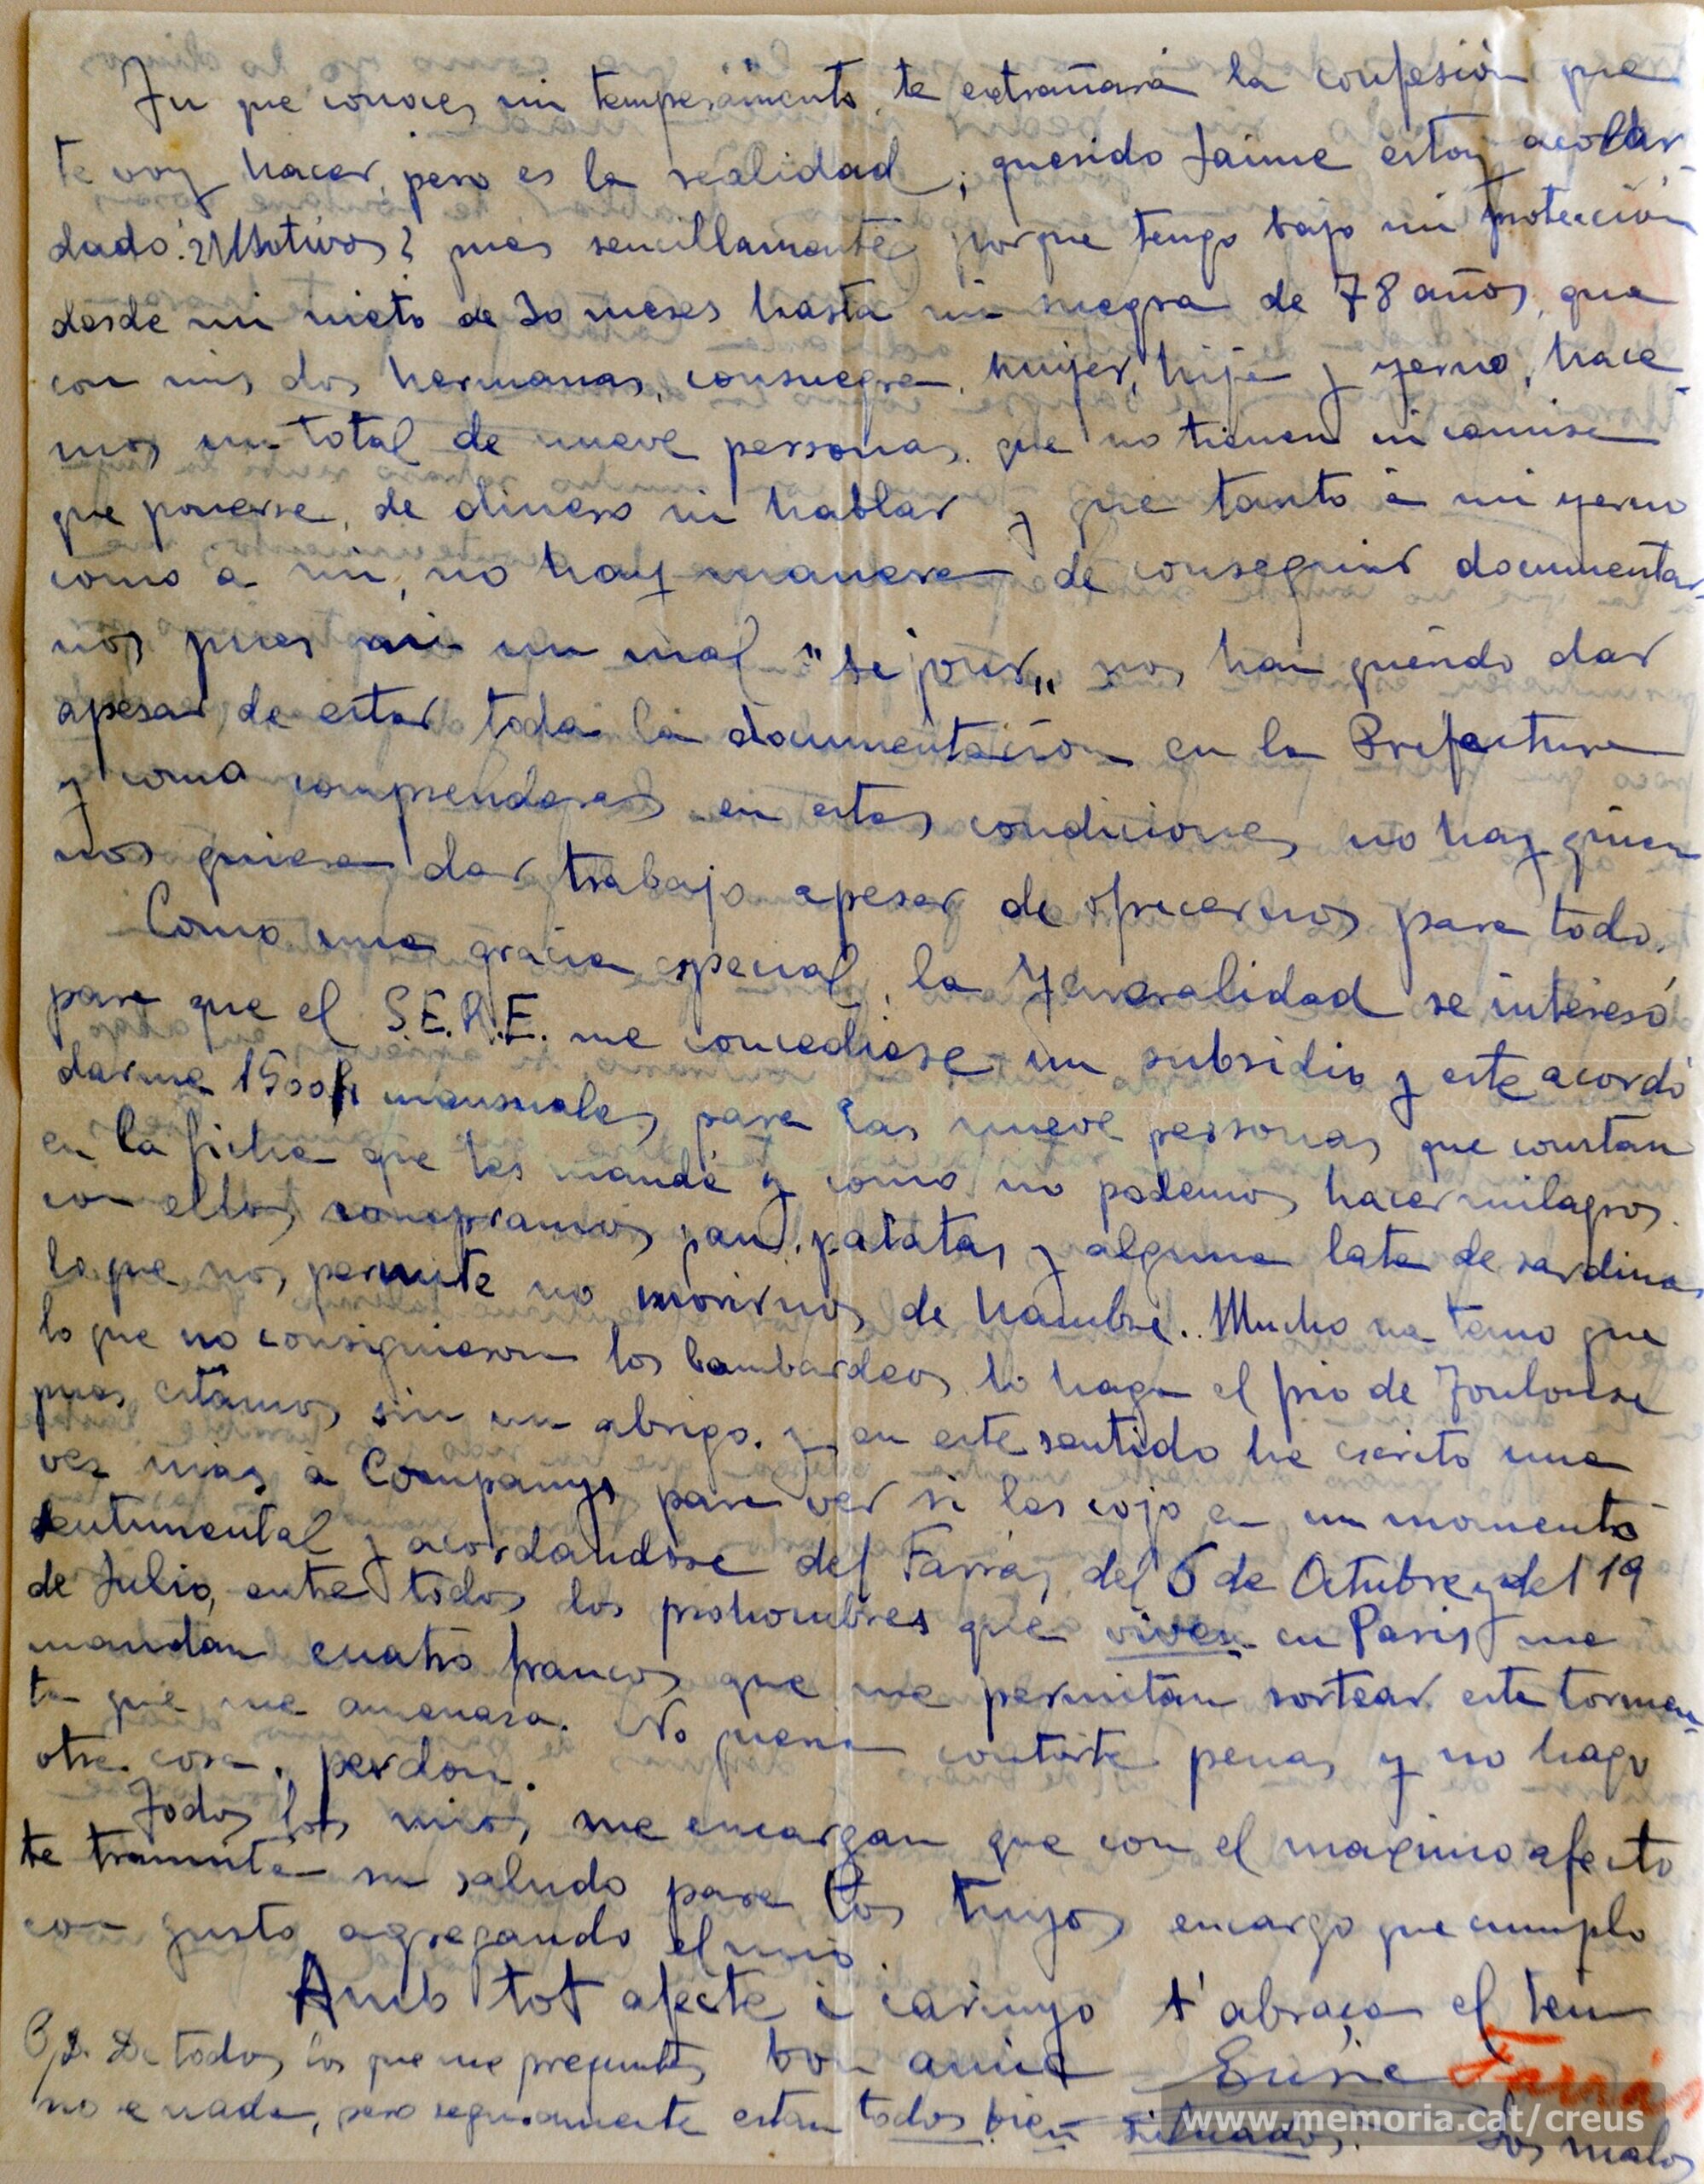 Tu que conoces mi temperamento, te extrañará la confesión que
te voy hacer, pero es la realidad; querido Jaime estoy acobar-
dado. ¿Motivos? pues sencillamente, porque tengo bajo mi protección
desde mi nieto de 20 meses hasta mi suegra de 78 años, que
con mis dos hermanas, consuegra, mujer, hija y yerno, hace-
mos un total de nueve personas que no tienen ni camisa
que ponerse, de dinero ni hablar y que tanto a mi yerno
como a mi, no hay manera de conseguir documentar-
nos pues ni un mal "sejour" nos han querido dar
apesar de estar toda la documentación en la Prefectura
y como comprenderas en estas condiciones no hay quien
nos quiera dar trabajo apesar de ofrecernos para todo.
Como una gracia especial, la Generalidad se interesó
para que el S.E.R.E. me concediese un subsidio y este acordó
darme 1500 fr mensuales para las nueve personas que constan
en la ficha que les mandé y como no podemos hacer milagros
con ellos compramos pan, patatas y alguna lata de sardinas
lo que nos permite no morirnos de hambre. Mucho me temo que
lo que no consiguieron los bombardeos lo haga el frio de Toulouse
pues estamos sin un abrigo. y en este sentido he escrito una
vez mas a Companys para ver si les cojo en un momento
sentimental y acordandose del Farrás del 6 de Octubre y del 19
de Julio, entre todos los prohombres que viven en Paris me
mandan cuatro francos que me permitan sortear esta tormen-
ta que me amenaza. No queria contarte penas y no hago
otra cosa, perdon.
Todos los mios, me encargan que con el maximo afecto
te tramita su saludo para los tuyos encargo que cumplo
con gusto agregando el mio.
Amb tot afecte i carinyo t'abraça el teu
bon amic
Farrás
P.D. De todos los que me preguntas
no se nada, pero seguramente estan todos bien situados. Los malos
www.memoria.cat/creus